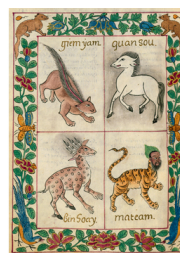 giem yam.
quan sou.
bin Soay.
mateam.